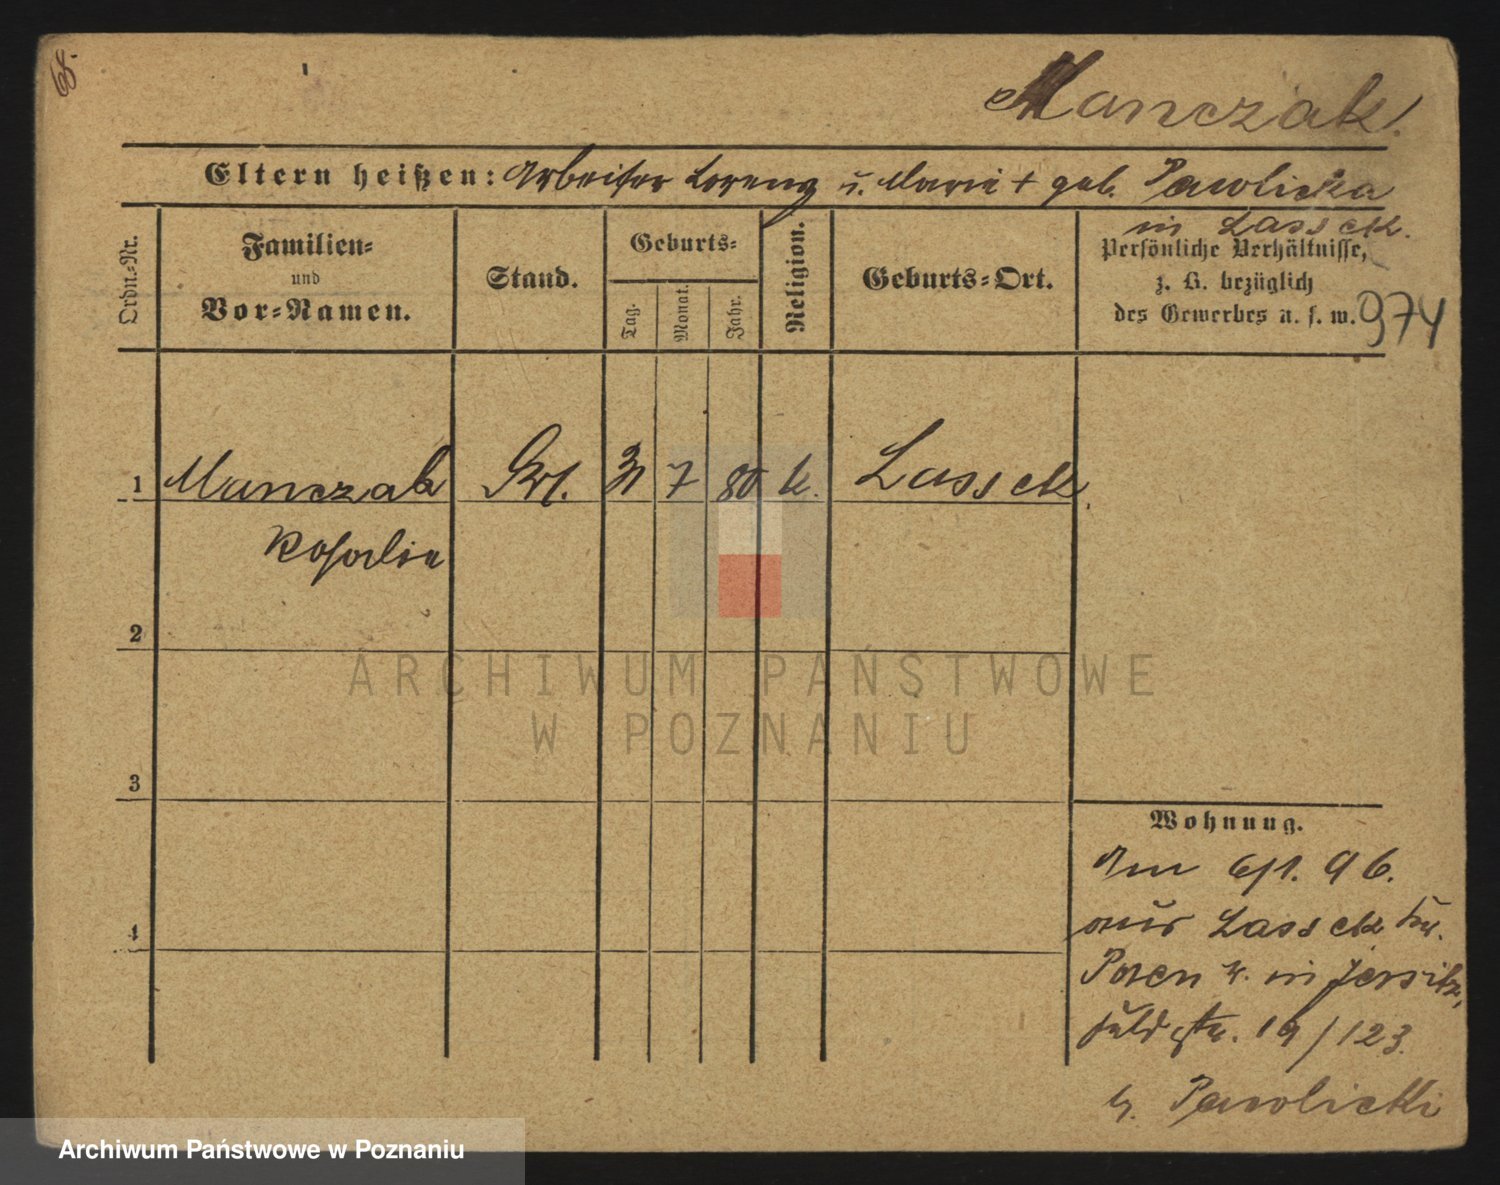 68.
Manczak.
Eltern heißen: Arbeiter Lorenz u. Marie + geb. Pawlicka
in Lassek.
Ordn.-Nr.
Familien-
und
Vor-Namen.
Stand.
Geburts-
Tag.
Monat.
Jahr.
Religion.
Geburts-Ort.
Persönliche Verhältnisse,
z. B. bezüglich
des Gewerbes u. s. w.
974
1 Manczak 31 7 80 k. Lassek
Rosalie
2
3
4
Wohnung.
Am 6/1. 96.
aus Lassek Kr.
Posen W. in Jersitz,
Feldstr. 19/123.
b. Pawlicki
ARCHIWUM PAŃSTWOWE
W POZNANIU
Archiwum Państwowe w Poznaniu